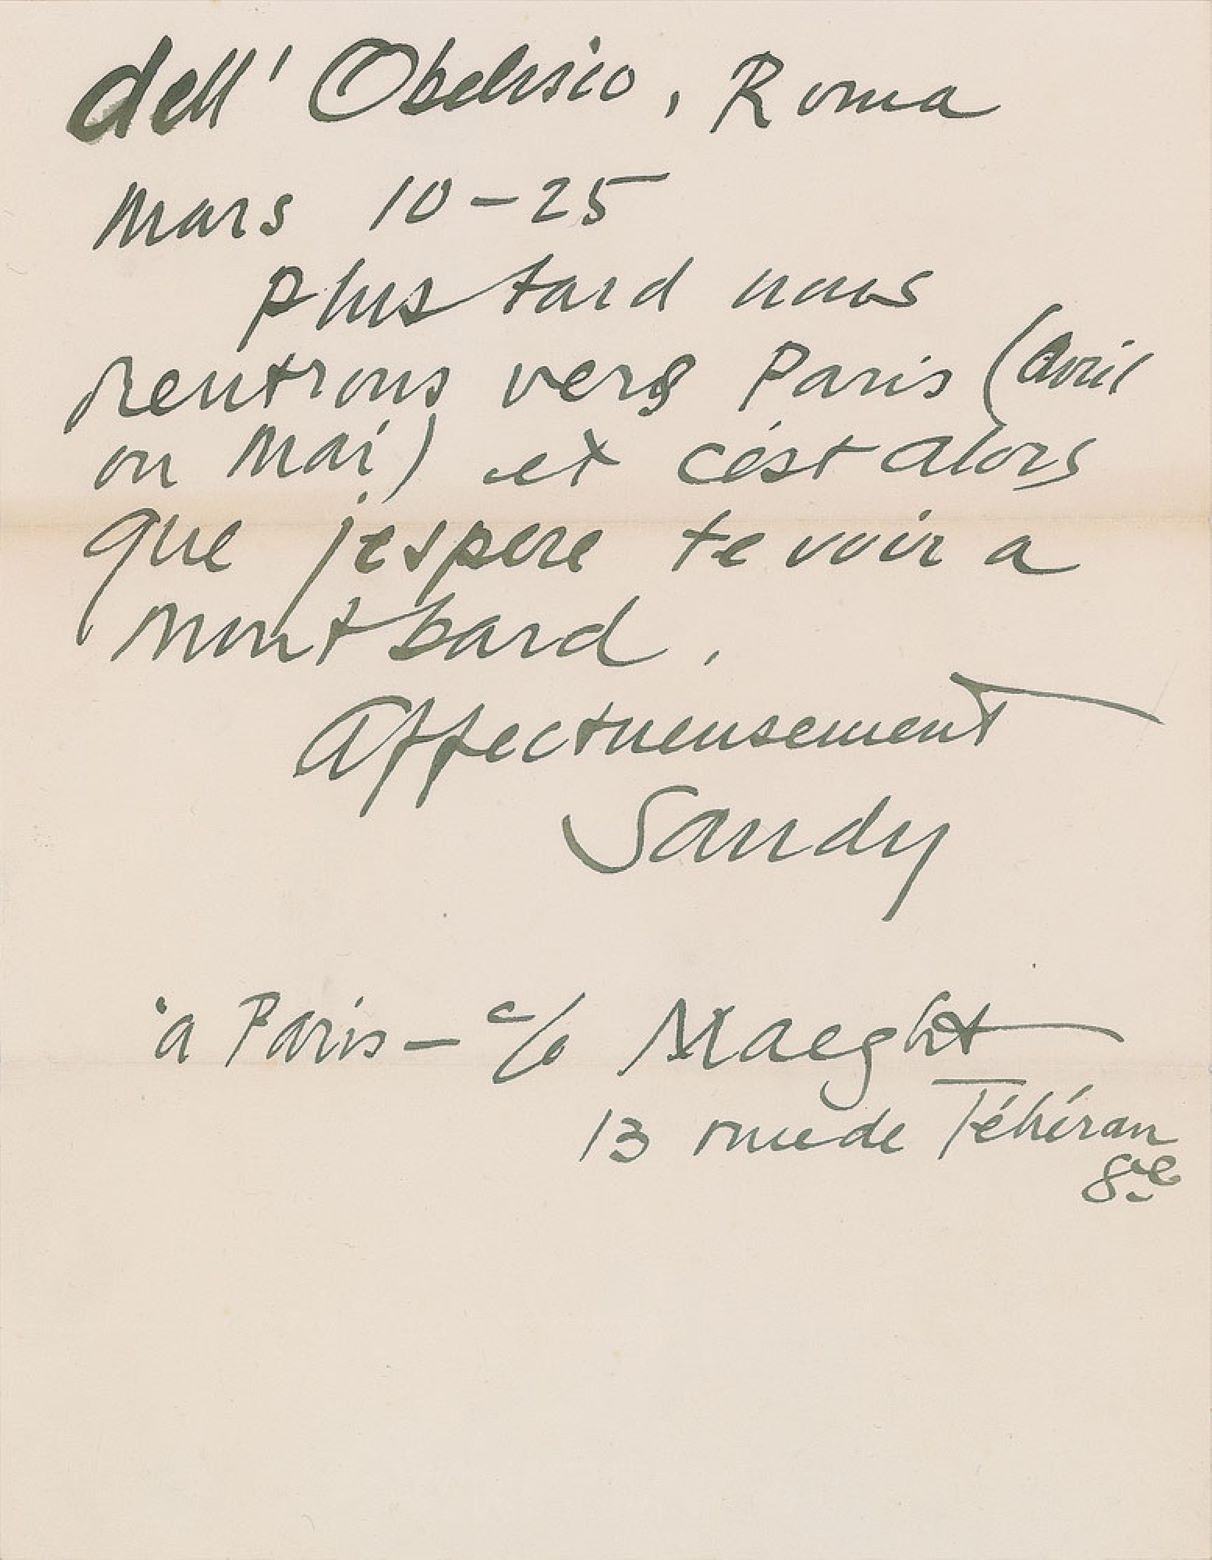 dell' Obelisco, Roma
Mars 10-25
plus tard nous
rentrons vers Paris (avril
ou Mai) et c'est alors
que j'espere te voir a
Montbard.
Affectueusement
Sandy
à Paris - c/o Maeght
13 rue de Téhéran
8e